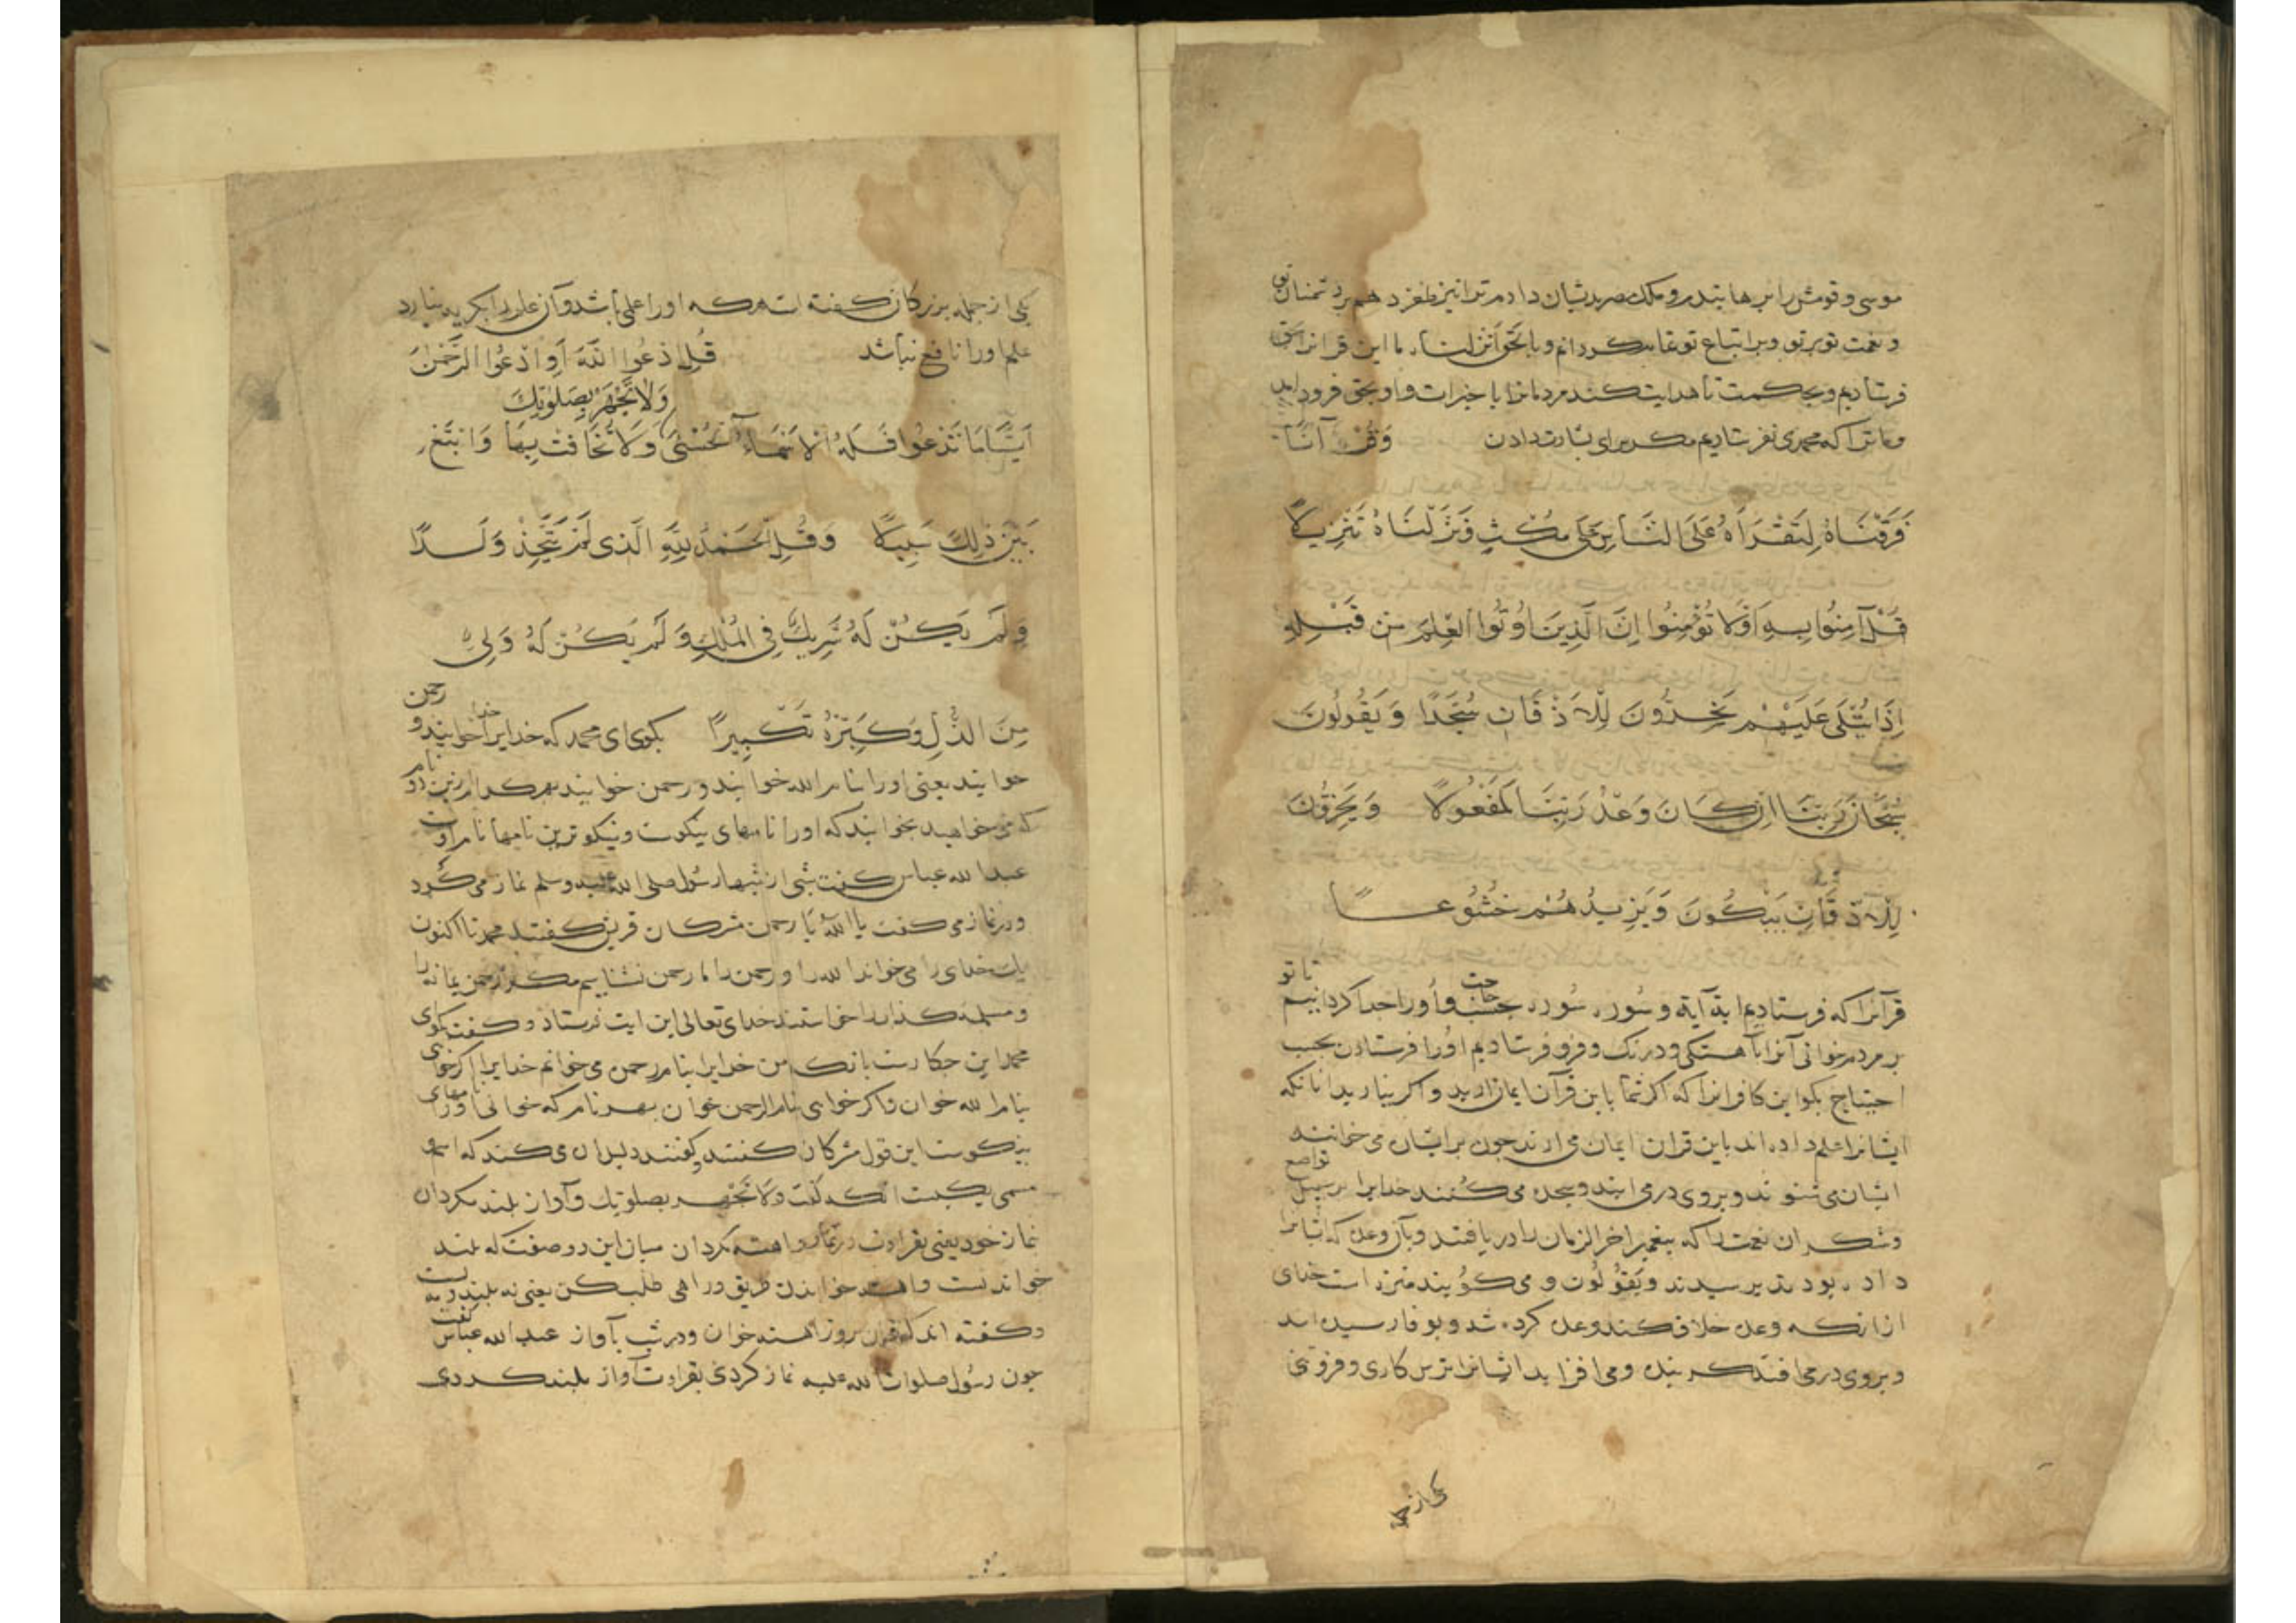 موسی و قومش را برهانیدم و ملک مصر بدیشان دادم ترا نیز ظفر دهم بر دشمنان تو
و نعمت تو بر تو و بر اتباع تو کردانم و بالحق انزلناه ما این قرانرا بحق
فرستادیم و بحکمت تا هدایت کند مردمانرا با خیرات و او بحق فرود امد
و ما ترا که محمدی نفرستادیم مکر برای بشارت دادن وَقُرْآنًا
فَرَقْنَاهُ لِتَقْرَأَهُ عَلَی النَّاسِ عَلَی مُکْثٍ وَنَزَّلْنَاهُ تَنْزِیلًا
قُلْ آمِنُوا بِهِ أَوْ لَا تُؤْمِنُوا إِنَّ الَّذِینَ أُوتُوا الْعِلْمَ مِنْ قَبْلِهِ
إِذَا یُتْلَی عَلَیْهِمْ یَخِرُّونَ لِلْأَذْقَانِ سُجَّدًا وَیَقُولُونَ
سُبْحَانَ رَبِّنَا إِنْ کَانَ وَعْدُ رَبِّنَا لَمَفْعُولًا وَیَخِرُّونَ
لِلْأَذْقَانِ یَبْکُونَ وَیَزِیدُهُمْ خُشُوعًا
قرآنرا که فرستادیم ایة آیة و سُوره سُوره بحسب حاجت و اورا جدا کردانیدیم تا تو
بر مردم خوانی آنرا بآهستکی و درنک و فرو فرستادیم اورا فرستادن بحسب
احتیاج بکو این کافرانرا که اکر شما باین قرآن ایمان ارید و اکر نیارید انانکه
ایشانرا علم داده اند باین قران ایمان می ارند چون بر ایشان می خوانند
ایشان می شنوند و بروی در می ایند و سجده می کنند خدایرا بر سبیل تواضع
و شکر ان نعمت را که پیغمبر اخر الزمان را دریافتند و بآن وعده که ایشانرا
داده بودند برسیدند و یَقُولُون و می کویند منزه است خدای
از انکه وعده خلاف کند وعده کرده شد و بوفا رسیده امد
و بروی در می افتند کرینده و می افزاید ایشانرا ترس کاری و فروتنی
یکی از جمله
یکی از جمله بزرکان کفته است هر که اورا علمی باشد و آن علم اورا بکریه نیارد
علم اورا نافع نباشد قُلِ ادْعُوا اللَّهَ أَوِ ادْعُوا الرَّحْمٰنَ
وَلَا تَجْهَرْ بِصَلٰوتِکَ
أَیًّا مَا تَدْعُوا فَلَهُ الْأَسْمَاءُ الْحُسْنَی وَلَا تُخَافِتْ بِهَا وَابْتَغِ
بَیْنَ ذٰلِکَ سَبِیلًا وَقُلِ الْحَمْدُ لِلَّهِ الَّذِی لَمْ یَتَّخِذْ وَلَدًا
وَلَمْ یَکُنْ لَهُ شَرِیکٌ فِی الْمُلْکِ وَلَمْ یَکُنْ لَهُ وَلِیٌّ
مِنَ الذُّلِّ وَکَبِّرْهُ تَکْبِیرًا بکوی ای محمد که خدایرا خدا خوانید و رحمن
خوانید یعنی اورا بنام الله خوانید و رحمن خوانید بهر کدام ازین دو نام
که می خواهید بخوانید که اورا نامهای نیکوست و نیکوترین نامها نام اوست
عبدالله عباس کفت شبی از شبها رسُول صلی الله علیه وسلم نماز می کرد
و در نماز می کفت یا الله یا رحمن مشرکان قریش کفتند محمد تا اکنون
یک خدای را می خواند الله را و رحمن را ما رحمن نشناسیم مکر رحمن یمامه را
و مسیلمه کذاب را خواستند خدای تعالی این ایت فرستاذ و کفت بکوی
محمد این جکارست بانک من خدایرا بنام رحمن می خوانم خدایرا اکر خواهی
بنام الله خوان و اکر خواهی بنام الرحمن خوان بهر نام که خوانی اورا نامهای
نیکوست این قول مشرکان کفتند و کفتند دلیل ان می کند که اسم
مسمی یکیست انکه کفت وَلَا تَجْهَر بصلوتک و آواز بلند مکردان
نماز خود یعنی بقراءت در نماز و اهسته مکردان میان این دو صفت که بلند
خواندنست و اهسته خواندن طریق و راهی طلب کن یعنی نه بلند و نه پست
و کفته اند که قران بروز اهسته خوان و در شب بآواز عبدالله عباس کفت
جون رسُول صلوات الله علیه نماز کردی بقراءت آواز بلند کردی